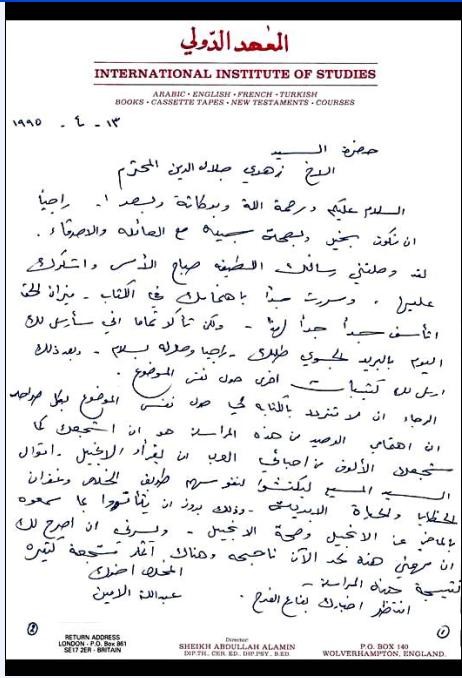 المعهد الدولي
INTERNATIONAL INSTITUTE OF STUDIES
ARABIC • ENGLISH • FRENCH • TURKISH
BOOKS • CASSETTE TAPES • NEW TESTAMENTS • COURSES
١٣ - ٤ - ١٩٩٥
حضرة السيد
الاخ زهدي جلال الدين المحترم
السلام عليكم ورحمة الله وبركاته وبعد ! راجياً
ان تكون بخير وبصحة جيده مع العائله والاصدقاء .
لقد وصلتني رسالتك اللطيفه صباح الأمس واشكرك
عليها . وسررت جداً باهتمامك في الكتاب - ميزان الحق
اتأسف جداً جداً - ولكن تأكد تماما اني سأرسل لك
اليوم بالبريد الجوي طلبك - راجيا وصوله بسلام - وبعد ذلك
ارسل لك كتيبات اخرى حول نفس الموضوع .
الرجاء ان لا تتردد بالكتابه لي حول نفس الموضوع بكل صراحه
ان اهتمامي الوحيد من هذه المراسلة هو ان اشجعك كما
شجعت الألوف من احبائي العرب ان يقرأو الانجيل - اقوال
السيد المسيح ليكتشفوا لنفوسهم طريق الخلاص وغفران
الخطايا والحياة الابديه - وذلك بدون ان يتأثروا بما سمعوه
بالماضي عن الانجيل وصحة الانجيل - ويسرني ان اصرح لك
ان مهمتي هذه لحد الآن ناجحه وهناك آثار مشجعة كثيره
نتيجة هذه المراسلة -
انتظر اخبارك بفارغ الصبر .
المخلص اخوك
عبدالله الامين
RETURN ADDRESS
LONDON - P.O. Box 861
SE17 2ER - BRITAIN
Director:
SHEIKH ABDULLAH ALAMIN
DIP.TH., CER. ED., DIP.PSY., B.ED.
P.O. BOX 140
WOLVERHAMPTON, ENGLAND.